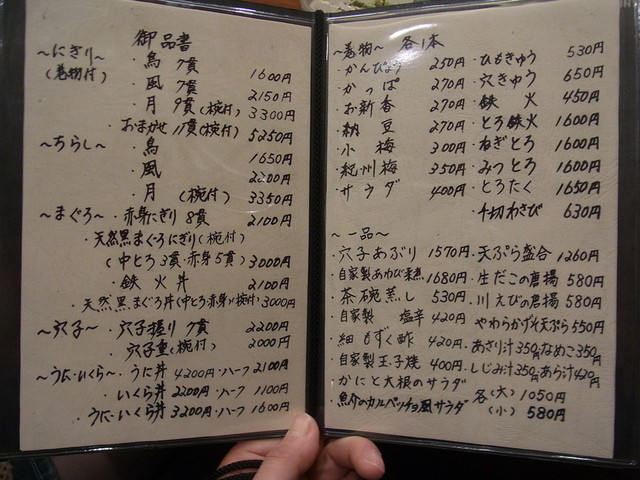 御品書
～にぎり～
(巻物付)
・鳥 7貫 1600円
・風 7貫 2150円
・月 9貫(椀付) 3300円
・おまかせ 11貫(椀付) 5250円
～ちらし～
・鳥 1650円
・風 2200円
・月 (椀付) 3350円
～まぐろ～
・赤身にぎり 8貫 2100円
・天然黒まぐろにぎり(椀付)
(中とろ3貫・赤身5貫) 3000円
・鉄火丼 2100円
・天然黒まぐろ丼(中とろ・赤身)(椀付) 3000円
～穴子～
・穴子握り 7貫 2200円
穴子重(椀付) 2000円
～うに・いくら～
うに丼 4200円・ハーフ 2100円
・いくら丼 2200円・ハーフ 1100円
・うに・いくら丼 3200円・ハーフ 1600円
～巻物～ 各1本
・かんぴょう 250円
・かっぱ 270円
・お新香 270円
・納豆 270円
・小梅 300円
・紀州梅 350円
・サラダ 400円
・ひもきゅう 530円
・穴きゅう 650円
・鉄火 450円
・とろ鉄火 1600円
・ねぎとろ 1600円
・みつとろ 1600円
・とろたく 1650円
・千切わさび 630円
～一品～
・穴子あぶり 1570円
・自家製あわび煮 1680円
・茶碗蒸し 530円
・自家製 塩辛 420円
・細もずく酢 420円
・自家製玉子焼 400円
・かにと大根のサラダ
・魚介のカルパッチョ風サラダ
各(大) 1050円
(小) 580円
・天ぷら盛合 1260円
・生だこの唐揚 580円
・川えびの唐揚 580円
・やわらかげそ天ぷら 550円
・あさり汁 350円 なめこ 350円
・しじみ汁 350円 あら汁 420円